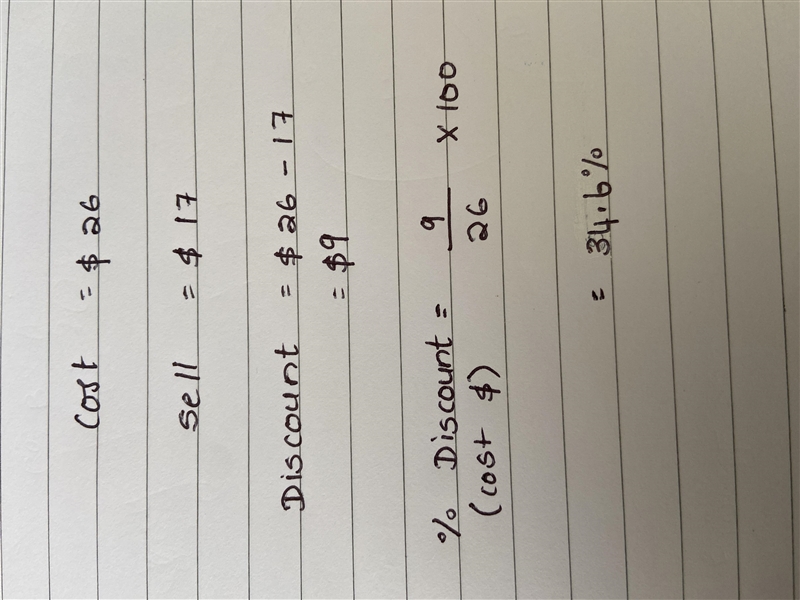 cost = $ 26
sell = $ 17
Discount = $ 26 - 17
= $9
% Discount = 9/26 × 100
(cost $)
= 34.6%